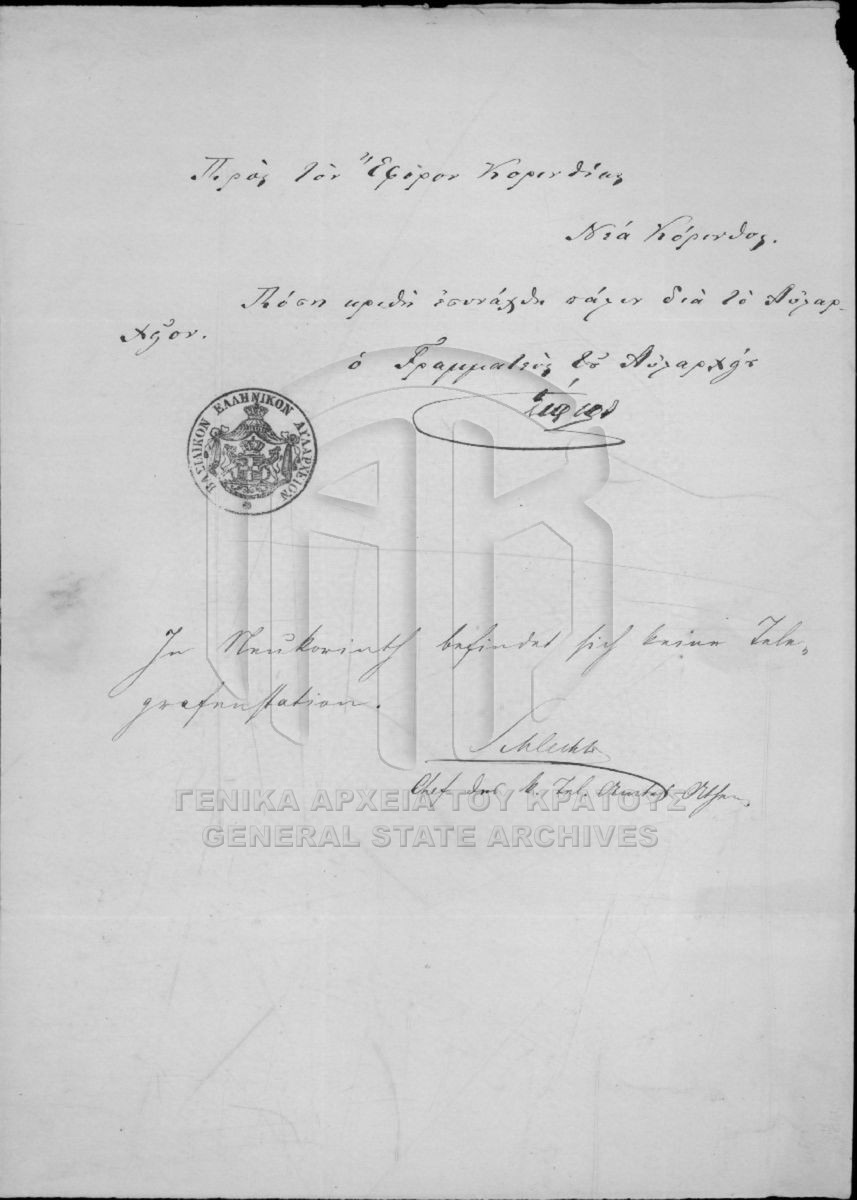 Πρὸς τὸν Ἔφορον Κορινθίας
Νέα Κόρινθος.
Πόση κριθὴ ἐσυνάχθη πάλιν διὰ τὸ Αὐλαρ-
χεῖον.
ὁ Γραμματεὺς τοῦ Αὐλαρχείου
ΒΑΣΙΛΙΚΟΝ ΕΛΛΗΝΙΚΟΝ ΑΥΛΑΡΧΕΙΟΝ
In Neukorinth befindet sich keine Tele-
grafenstation.
Schlechte
Chef des k. Tel. Amtes Athen
ΓΕΝΙΚΑ ΑΡΧΕΙΑ ΤΟΥ ΚΡΑΤΟΥΣ
GENERAL STATE ARCHIVES